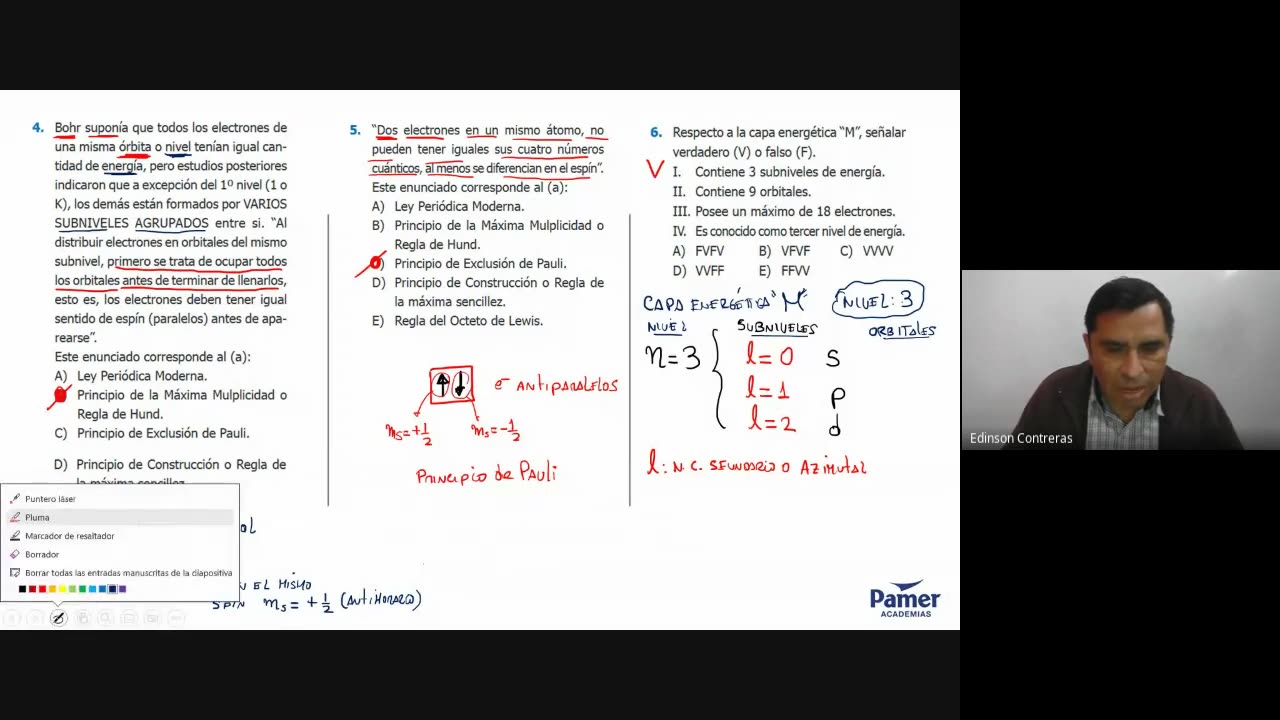 4. Bohr suponía que todos los electrones de
una misma órbita o nivel tenían igual can-
tidad de energía, pero estudios posteriores
indicaron que a excepción del 1º nivel (1 o
K), los demás están formados por VARIOS
SUBNIVELES AGRUPADOS entre si. “Al
distribuir electrones en orbitales del mismo
subnivel, primero se trata de ocupar todos
los orbitales antes de terminar de llenarlos,
esto es, los electrones deben tener igual
sentido de espín (paralelos) antes de apa-
rearse”.
Este enunciado corresponde al (a):
A) Ley Periódica Moderna.
Principio de la Máxima Mulplicidad o
Regla de Hund.
C) Principio de Exclusión de Pauli.
D) Principio de Construcción o Regla de
la máxima sencillez.
Puntero láser
Pluma
Marcador de resaltador
Borrador
Borrar todas las entradas manuscritas de la diapositiva
EL MISMO
SPIN ms = +1/2 (ANTIHORARIO)
5. “Dos electrones en un mismo átomo, no
pueden tener iguales sus cuatro números
cuánticos, al menos se diferencian en el espín”.
Este enunciado corresponde al (a):
A) Ley Periódica Moderna.
B) Principio de la Máxima Mulplicidad o
Regla de Hund.
) Principio de Exclusión de Pauli.
D) Principio de Construcción o Regla de
la máxima sencillez.
E) Regla del Octeto de Lewis.
e- ANTIPARALELOS
ms=+1/2 ms=-1/2
PRINCIPIO DE PAULI
6. Respecto a la capa energética “M”, señalar
verdadero (V) o falso (F).
V I. Contiene 3 subniveles de energía.
II. Contiene 9 orbitales.
III. Posee un máximo de 18 electrones.
IV. Es conocido como tercer nivel de energía.
A) FVFV B) VFVF C) VVVV
D) VVFF E) FFVV
CAPA ENERGÉTICA "M" NIVEL: 3
NIVEL SUBNIVELES ORBITALES
n=3 l=0 s
l=1 p
l=2 d
l: N.C. SECUNDARIO O AZIMUTAL
Pamer
ACADEMIAS
Edinson Contreras